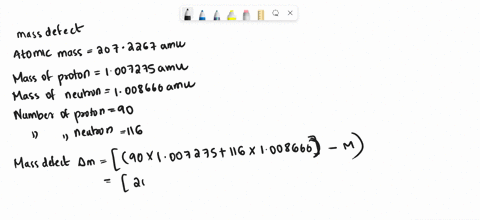 mass defect
Atomic mass = 207.2267 amu
Mass of proton = 1.007275 amu
Mass of neutron = 1.008666 amu
Number of proton = 90
" " neutron = 116
Mass defect Δm = [(90 × 1.007275 + 116 × 1.008666) - M)
= [ 21